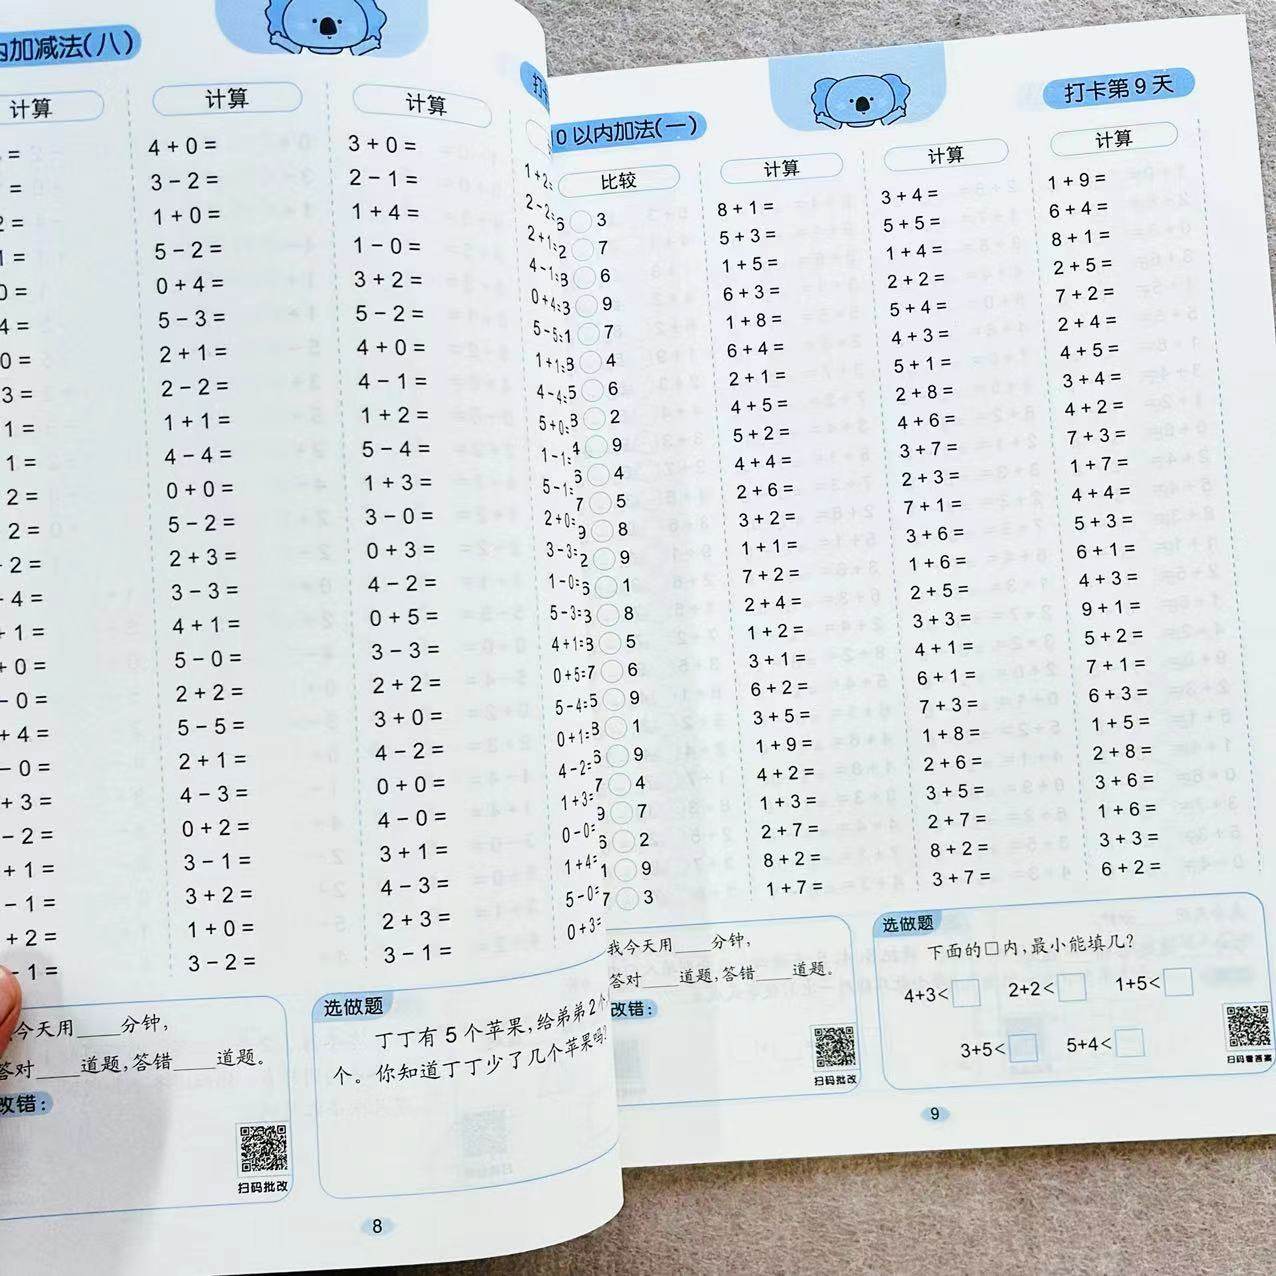 内加减法(八)
计算
=
=
2=
1=
0=
4=
0=
3=
1=
1=
2=
2=
-2=
-4=
+1=
+0=
-0=
+4=
-0=
+3=
-2=
+1=
-1=
+2=
-1=
计算
4+0=
3-2=
1+0=
5-2=
0+4=
5-3=
2+1=
2-2=
1+1=
4-4=
0+0=
5-2=
2+3=
3-3=
4+1=
5-0=
2+2=
5-5=
2+1=
4-3=
0+2=
3-1=
3+2=
1+0=
3-2=
计算
3+0=
2-1=
1+4=
1-0=
3+2=
5-2=
4+0=
4-1=
1+2=
5-4=
1+3=
3-0=
0+3=
4-2=
0+5=
3-3=
2+2=
3+0=
4-2=
0+0=
4-0=
3+1=
4-3=
2+3=
3-1=
打
1+2=
2-2=
2+1=
4-1=
0+4=
5-5=
1+1=
4-4=
5+0=
1-1=
5-1=
2+0=
3-3=
1-0=
5-3=
4+1=
0+5=
5-4=
0+1=
4-2=
1+3=
0-0=
1+4=
5-0=
0+3=
今天用____分钟,
答对____道题,答错____道题。
改错:
扫码批改
选做题
丁丁有5个苹果,给弟弟2个
个。你知道丁丁少了几个苹果吗?
8
0以内加法(一)
打卡第9天
比较
6○3
2○7
8○6
3○9
1○7
8○4
5○6
8○2
4○9
6○4
7○5
9○8
2○9
6○1
3○8
8○5
7○6
5○9
8○1
6○9
7○4
9○7
6○2
1○9
7○3
计算
8+1=
5+3=
1+5=
6+3=
1+8=
6+4=
2+1=
4+5=
5+2=
4+4=
2+6=
3+2=
1+1=
7+2=
2+4=
1+2=
3+1=
6+2=
3+5=
1+9=
4+2=
1+3=
2+7=
8+2=
1+7=
计算
3+4=
5+5=
1+4=
2+2=
5+4=
4+3=
5+1=
2+8=
4+6=
3+7=
2+3=
7+1=
3+6=
1+6=
2+5=
3+3=
4+1=
6+1=
7+3=
1+8=
2+6=
3+5=
2+7=
8+2=
3+7=
计算
1+9=
6+4=
8+1=
2+5=
7+2=
2+4=
4+5=
3+4=
4+2=
7+3=
1+7=
4+4=
5+3=
6+1=
4+3=
9+1=
5+2=
7+1=
6+3=
1+5=
2+8=
3+6=
1+6=
3+3=
6+2=
我今天用____分钟,
答对____道题,答错____道题。
改错:
扫码批改
选做题
下面的□内,最小能填几?
4+3<□ 2+2<□ 1+5<□
3+5<□ 5+4<□
扫码看答案
9